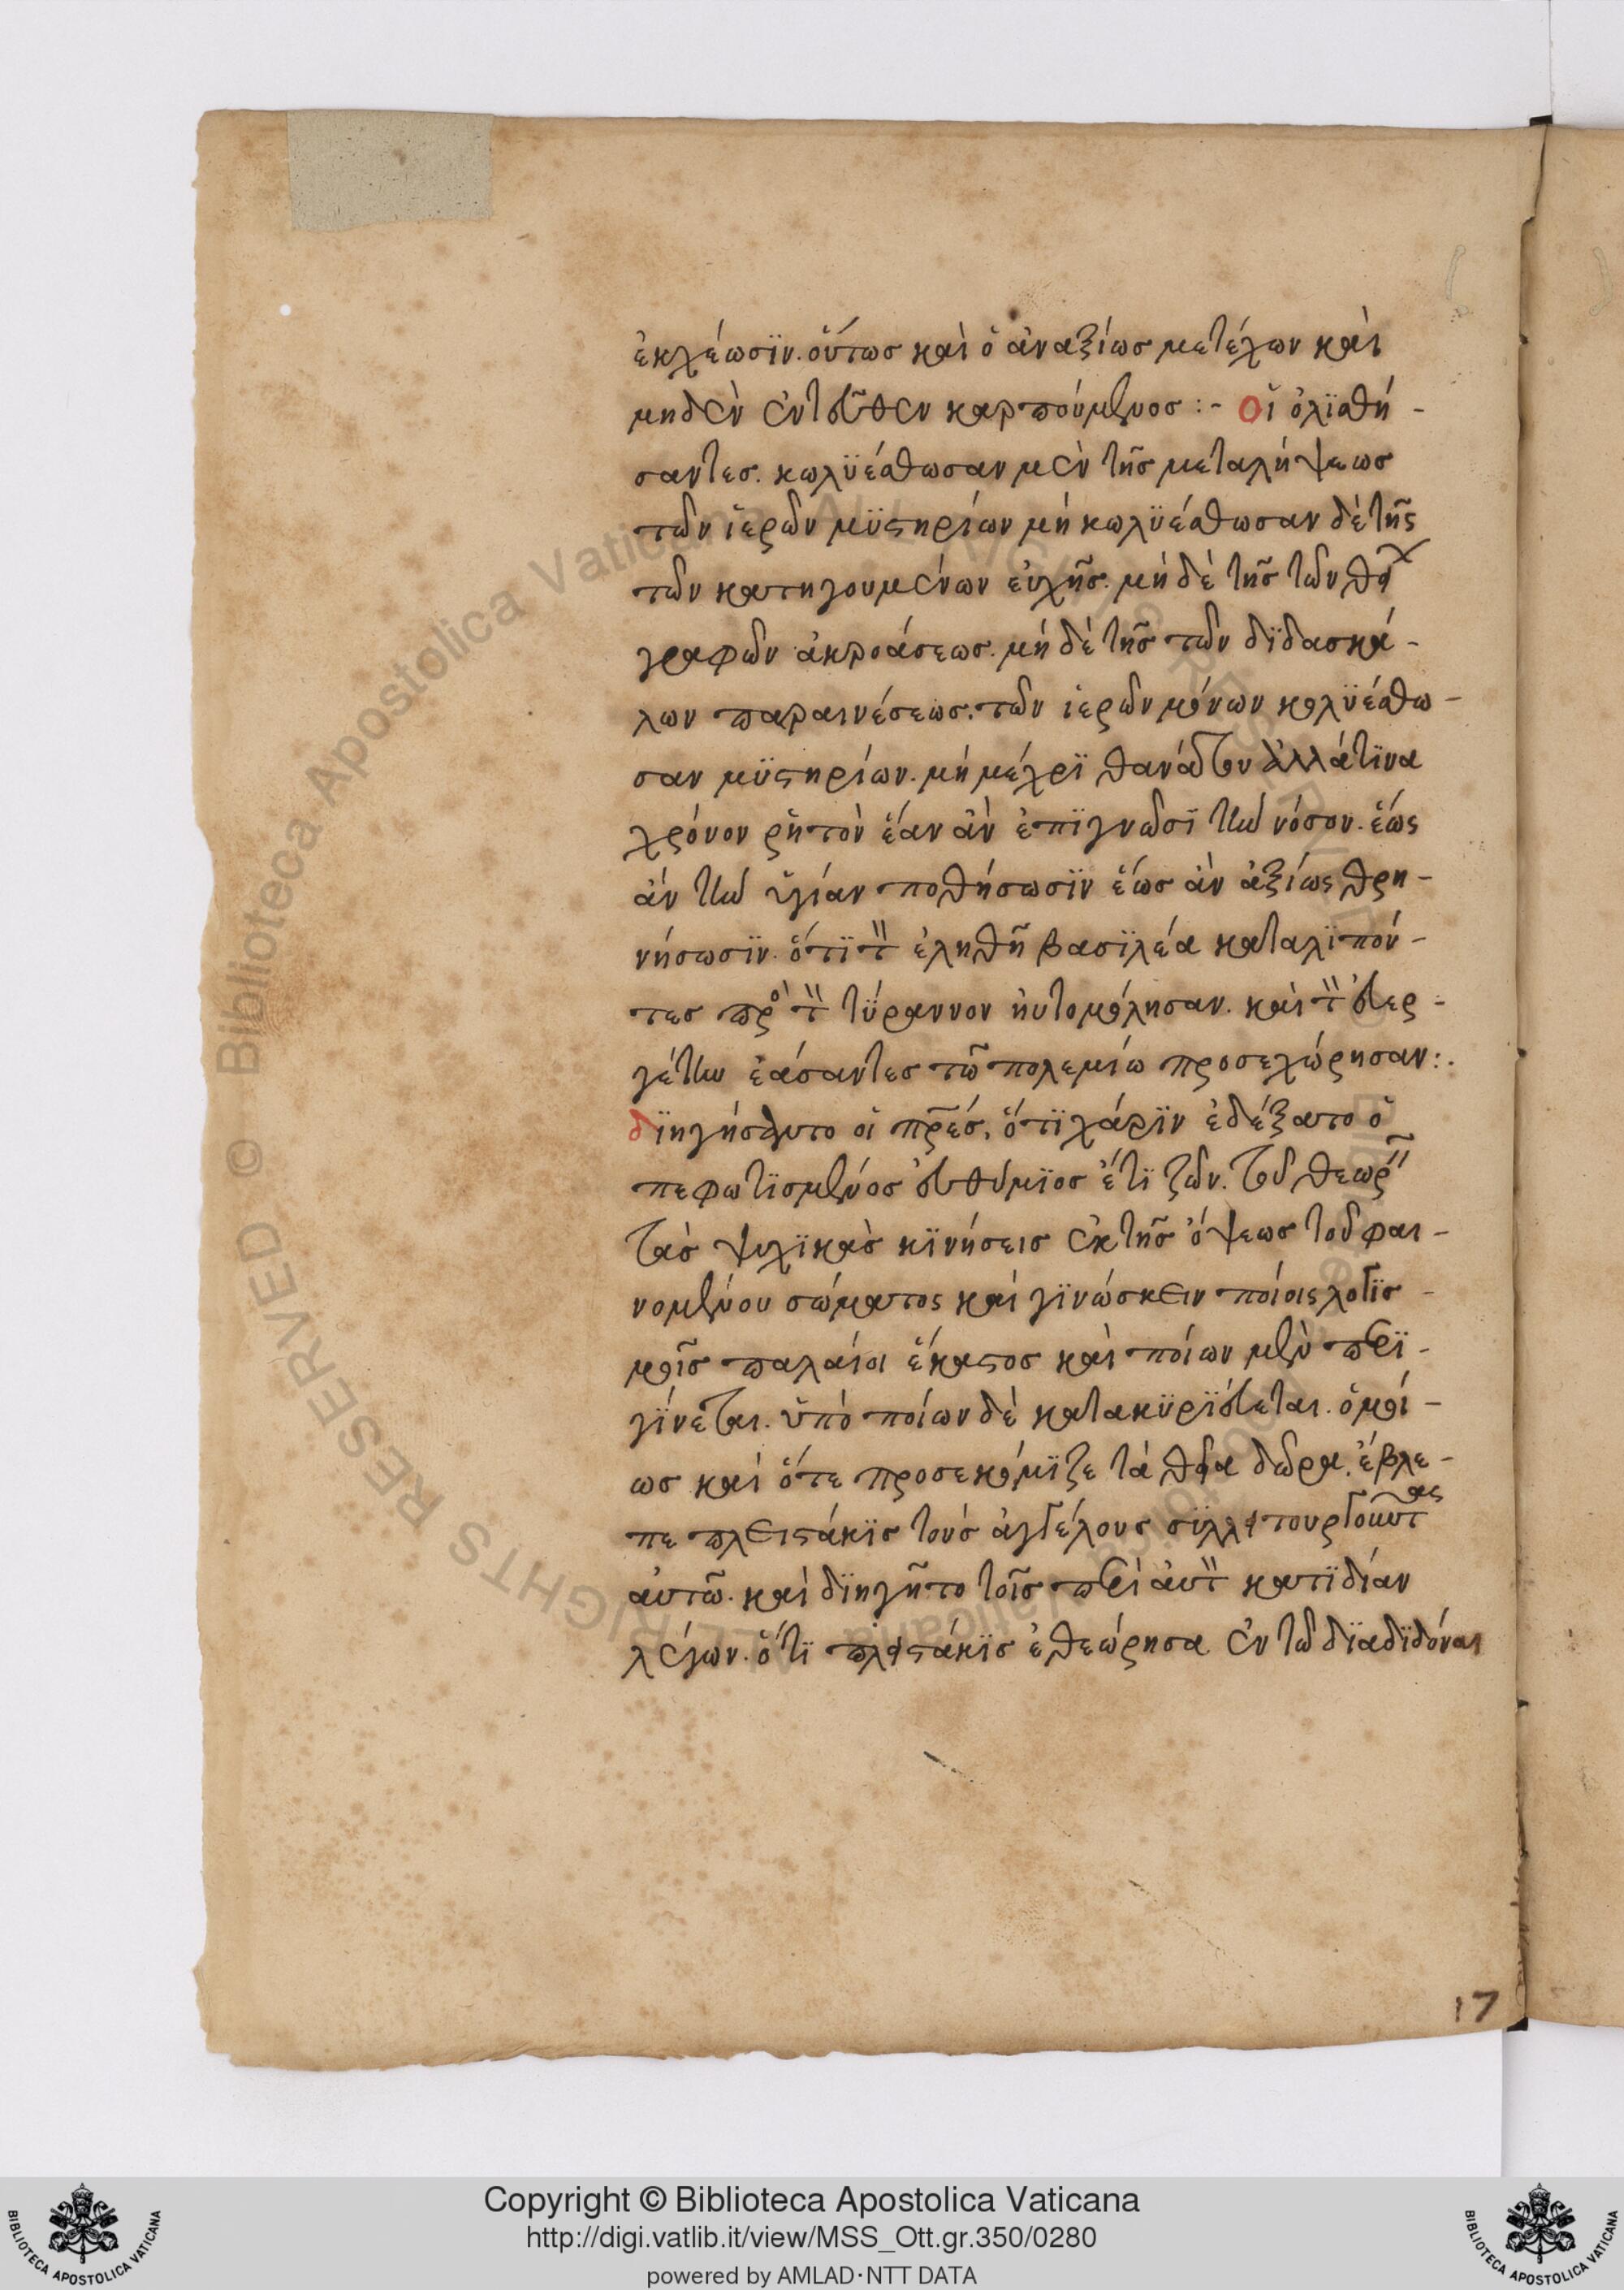 ἐκχέωσϊν. οὕτωσ καὶ ὁ ἀναξίωσ μετέχων καὶ
μηδὲν ἐντεῦθεν καρπούμενοσ :- Οἱ ὀλϊσθή -
σαντεσ. κωλϋέσθωσαν μὲν τῆσ μεταλήψεωσ
τῶν ἱερῶν μϋστηρίων μὴ κωλϋέσθωσαν δὲ τῆς
τῶν κατηχουμένων εὐχῆσ. μὴ δὲ τῆσ τῶν θείων
γραφῶν ἀκροάσεωσ. μὴ δὲ τῆσ τῶν δϊδασκά -
λων παραινέσεωσ. τῶν ἱερῶν μόνων κολϋέσθω -
σαν μϋστηρίων. μὴ μέχρϊ θανάτου ἀλλά τϊνα
χρόνον ρητὸν ἕαν ἂν ἐπϊγνῶσϊ τὴν νόσον. ἕως
ἂν τὴν ὑγίαν ποθήσωσϊν ἕωσ ἂν ἀξίως θρη -
νήσωσϊν. ὅτϊ τὸν ἐληθῆ βασϊλέα καταλϊπόν -
τεσ πρὸσ τὸν τϋραννον ηὐτομόλησαν. καὶ τὸν εὐερ -
γέτην ἐάσαντεσ τῶ πολεμίω προσεχώρησαν :.
δϊηγήσαντο οἱ πρέσ. ὅτϊ χάρϊν ἐδέξατο ὁ
πεφωτϊσμένοσ εὐθύμϊοσ ἔτϊ ζῶν. τοῦ θεωρεῖν
τὰσ ψυχϊκὰσ κϊνήσεισ ἐκ τῆσ ὄψεωσ τοῦ φαι -
νομένου σώματος καὶ γϊνώσκειν ποίοις λογϊσ -
μοῖσ παλαίοι ἕκαστοσ καὶ ποίων μὲν περϊ -
γϊνεται. ὑπὸ ποίων δὲ κατακϋρϊεύεται. ὁμοί -
ωσ καὶ ὅτε προσεκόμϊζε τὰ θεῖα δῶρα. ἔβλε -
πε πλειστάκϊσ τοὺσ ἀγγέλουσ σϋλλειτουργοῦντας
αὐτῶ. καὶ δϊηγῆτο τοῖσ περὶ αὐτὸν κατϊδίαν
λέγων. ὅτϊ πλειστάκϊσ ἐθεώρησα ἐν τῶ δϊαδϊδόναι
17
Copyright © Biblioteca Apostolica Vaticana
http://digi.vatlib.it/view/MSS_Ott.gr.350/0280
powered by AMLAD·NTT DATA